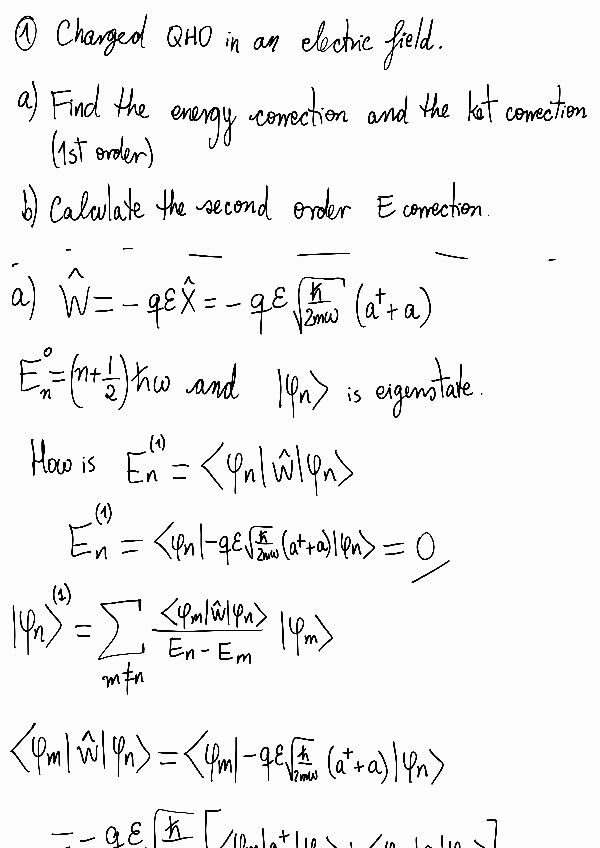 ① Charged QHO in an electric field.
a) Find the energy correction and the ket correction
(1st order)
b) Calculate the second order E correction.
a) Ŵ = - qε X̂ = - qε √(ħ/2mω) (a⁺ + a)
Eₙ⁰ = (n + 1/2) ħω and |φₙ⟩ is eigenstate.
How is Eₙ⁽¹⁾ = ⟨φₙ|Ŵ|φₙ⟩
Eₙ⁽¹⁾ = ⟨φₙ|-qε √(ħ/2mω) (a⁺+a)|φₙ⟩ = 0
|ψₙ⟩⁽¹⁾ = ∑_{m≠n} ⟨φₘ|Ŵ|φₙ⟩ / (Eₙ - Eₘ) |φₘ⟩
⟨φₘ|Ŵ|φₙ⟩ = ⟨φₘ|-qε √(ħ/2mω) (a⁺+a)|φₙ⟩
= - qε √ħ [⟨φₘ|a⁺|φₙ⟩ + ⟨φₘ|a|φₙ⟩]